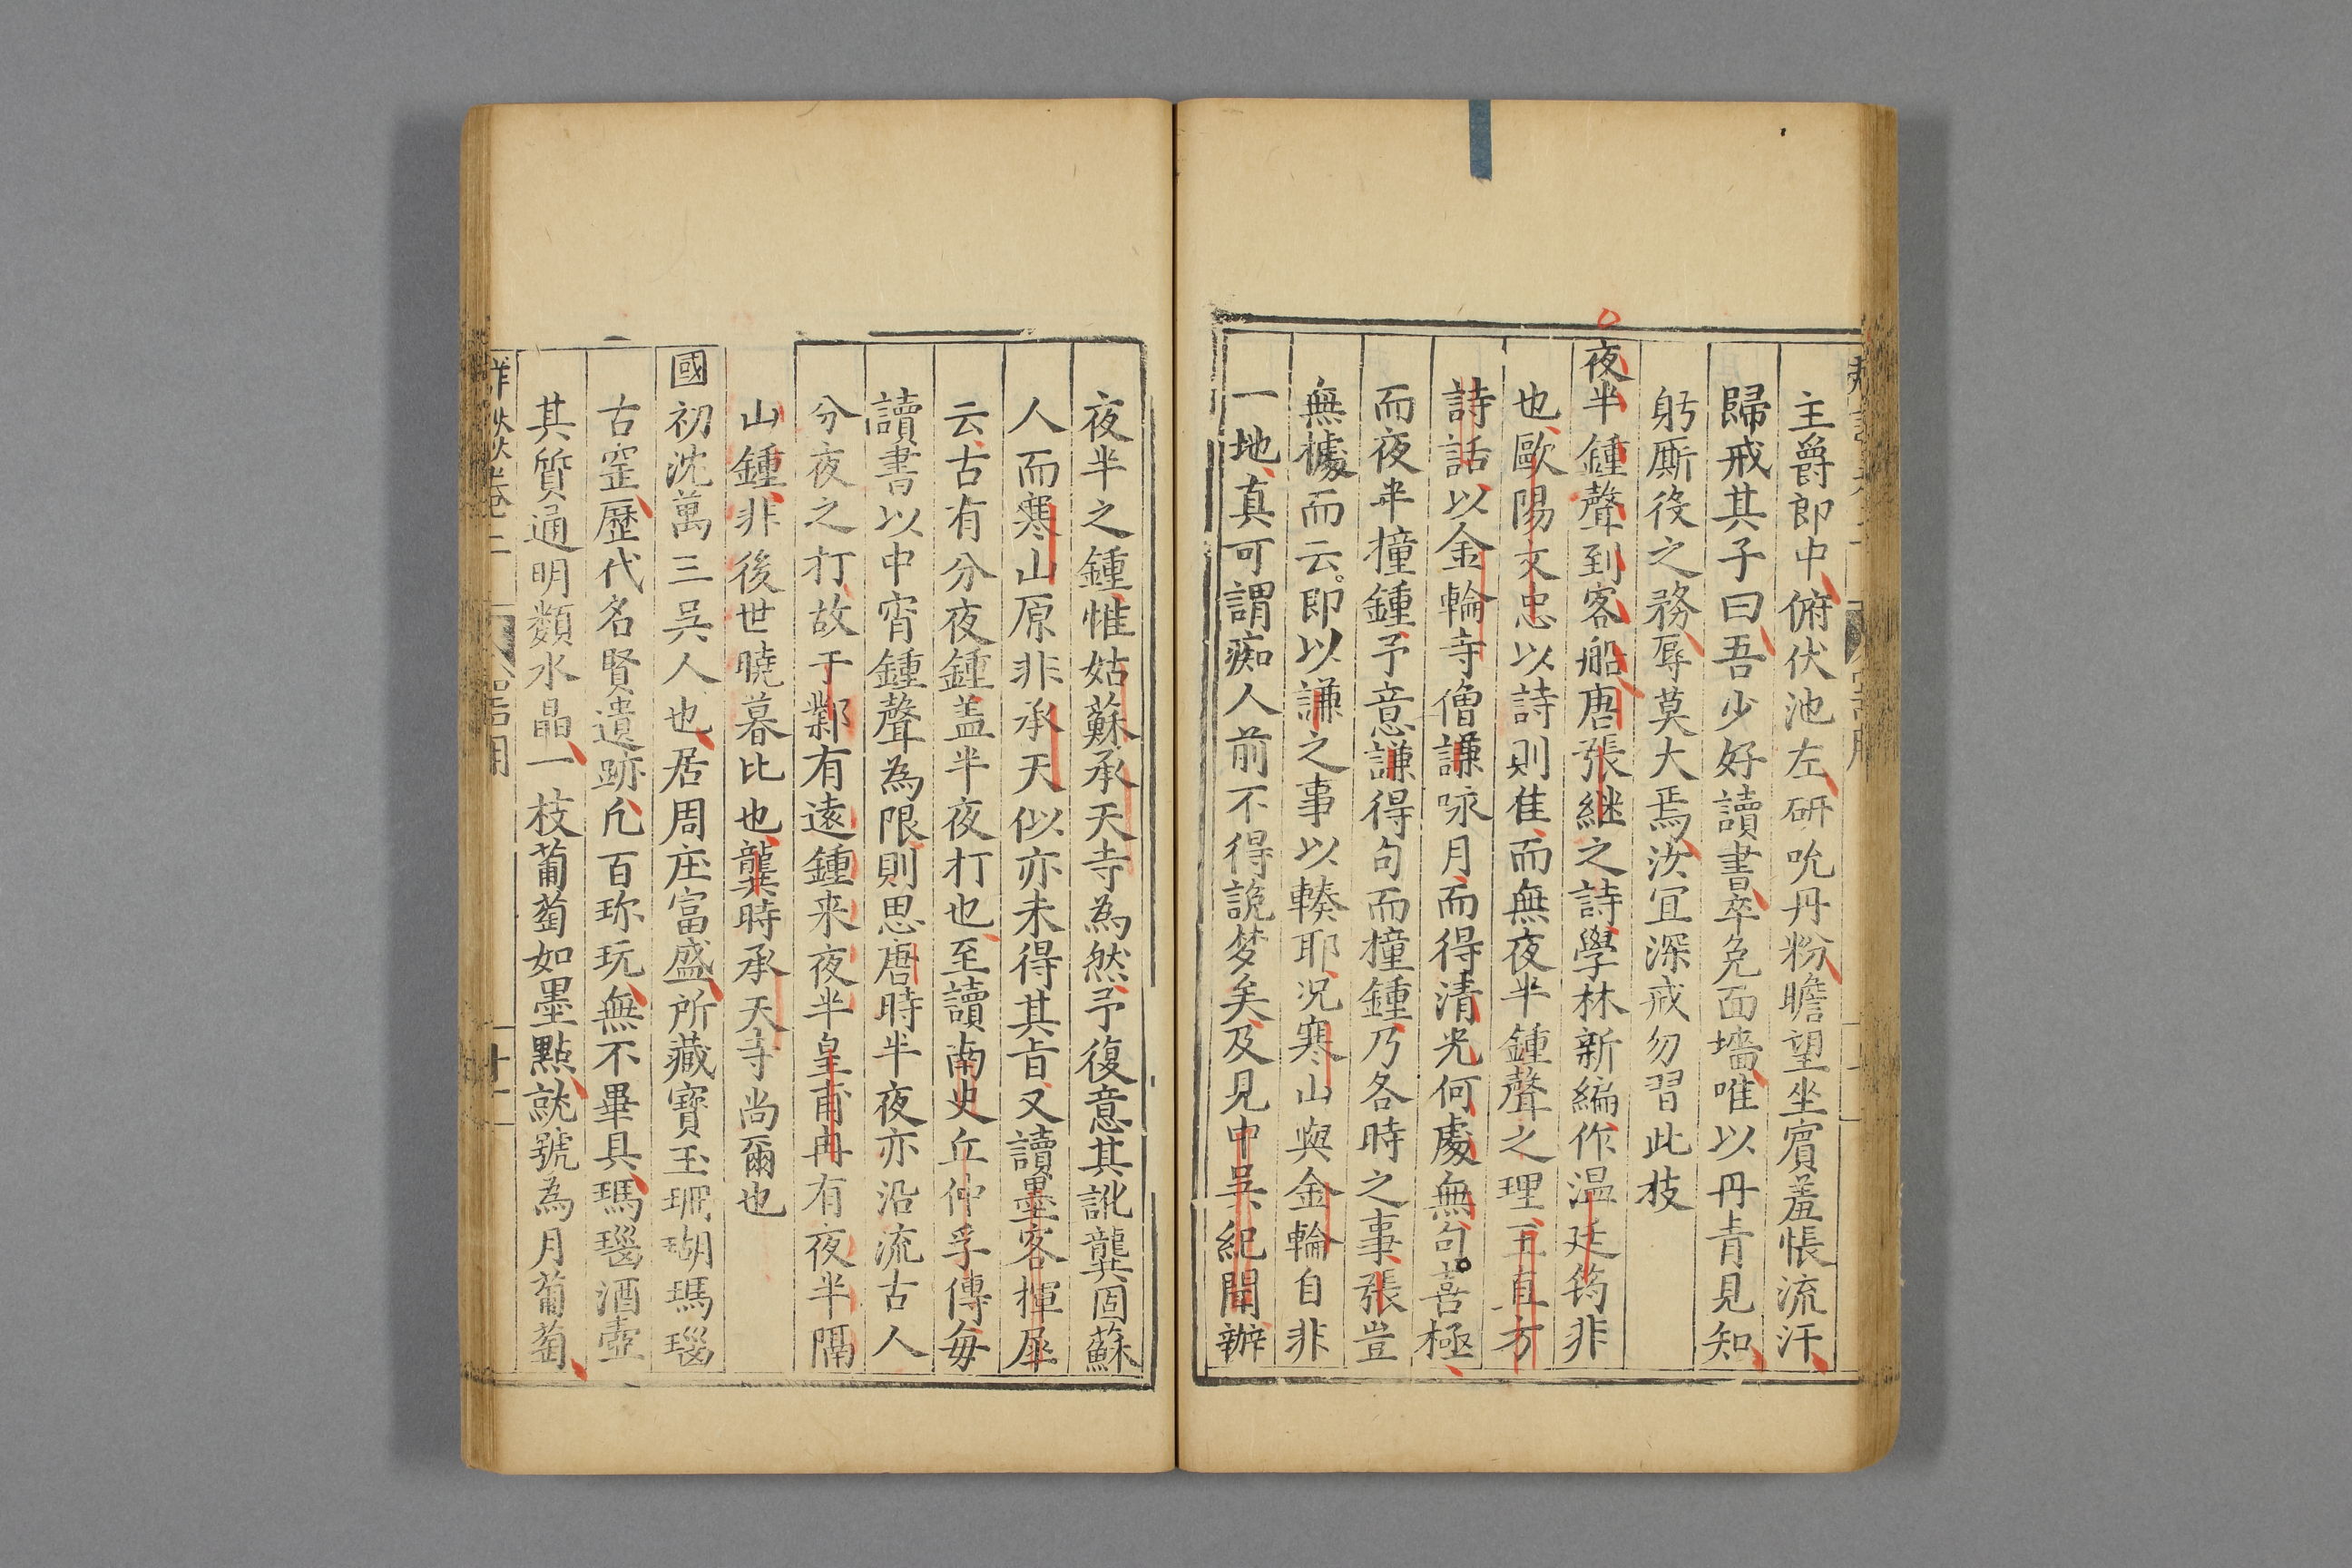 主爵郎中俯伏池左研吮丹粉瞻望坐賓羞悵流汗
歸戒其子曰吾少好讀書卒免面墻唯以丹青見知
躬厮役之務辱莫大焉汝宜深戒勿習此技
夜半鍾聲到客船唐張継之詩學林新編作温廷筠非
也歐陽文忠以詩則佳而無夜半鍾聲之理王直方
詩話以金輪寺僧謙咏月而得清光何處無句喜極
而夜半撞鍾予意謙得句而撞鍾乃各時之事張豈
無㯫而云即以謙之事以輳耶况寒山與金輪自非
一地真可謂痴人前不得說梦矣及見中吳紀聞辦
夜半之鍾惟姑蘇承天寺為然予復意其訛龔固蘇
人而寒山原非承天似亦未得其旨又讀墨客揮犀
云古有分夜鍾盖半夜打也至讀南史丘仲孚傳每
讀書以中宵鍾聲為限則思唐時半夜亦沿流古人
分夜之打故于鄴有遠鍾来夜半皇甫冉有夜半隔
山鍾非後世曉暮比也龔時承天寺尚爾也
國初沈萬三吳人也居周庄富盛所藏寶玉珊瑚瑪瑙
古窑歷代名賢遺跡凢百珎玩無不畢具瑪瑙酒壺
其質通明類水晶一枝葡萄如墨點就號為月葡萄